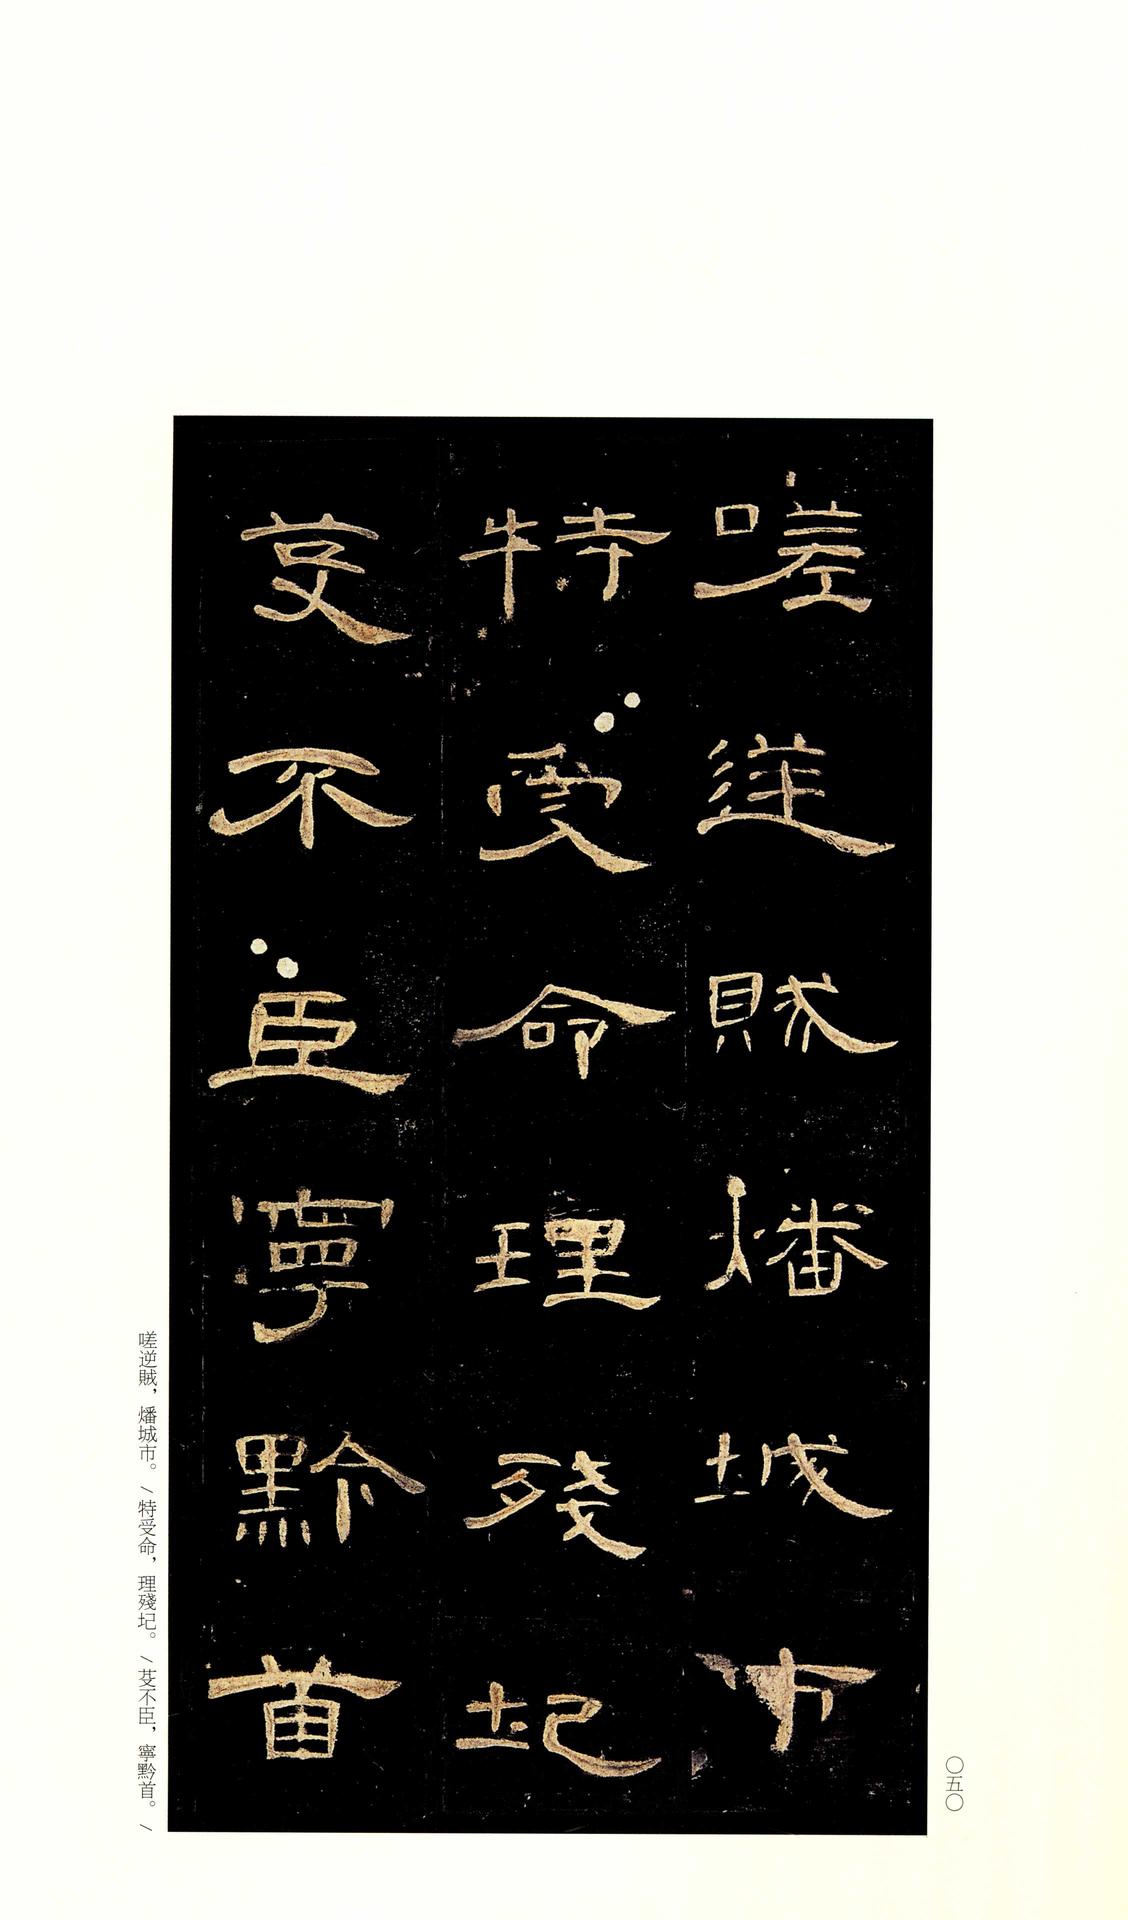 嗟逆賊燔城市
特受命理殘圮
芟不臣寧黔首
嗟逆賊，燔城市。/特受命，理殘圮。/芟不臣，寧黔首。/
〇五〇